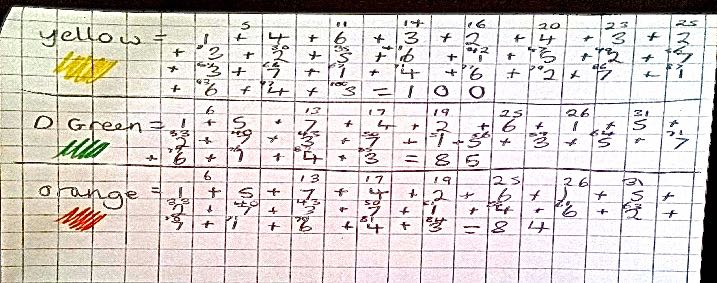 5 11 14 16 20 23 25
yellow = 1 + 4 + 6 + 3 + 2 + 4 + 3 + 2
+ 3 + 2 + 5 + 6 + 1 + 5 + 2 + 7
+ 3 + 7 + 1 + 4 + 6 + 2 + 7 + 1
+ 6 + 4 + 3 = 100
6 13 17 19 25 26 31
D Green = 1 + 5 + 7 + 4 + 2 + 6 + 1 + 5 +
2 + 7 + 3 + 7 + 1 + 5 + 3 + 5 + 7
+ 6 + 1 + 4 + 3 = 85
6 13 17 19 25 26 31
orange = 1 + 5 + 7 + 4 + 2 + 6 + 1 + 5 +
2 + 7 + 3 + 7 + 1 + 4 + 6 + 2 +
7 + 1 + 6 + 4 + 3 = 84